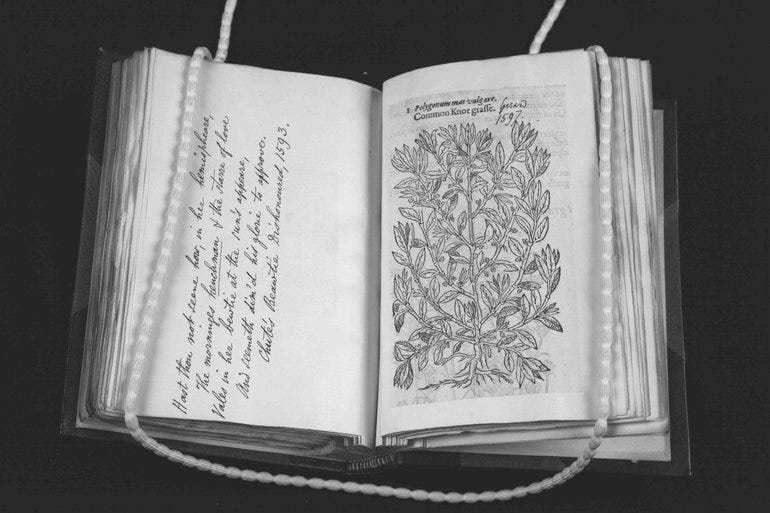 Hast thou not seene how, in her hemispheare,
The mornings henchman & the starre of love
Vales in her bewtie at the sun's appeare,
And seemeth dim'd his glorie to approve.
Chute's Beawtie Dishonoured, 1593.
1 Polygonum mas vulgare.
Common Knot grasse.
1597.